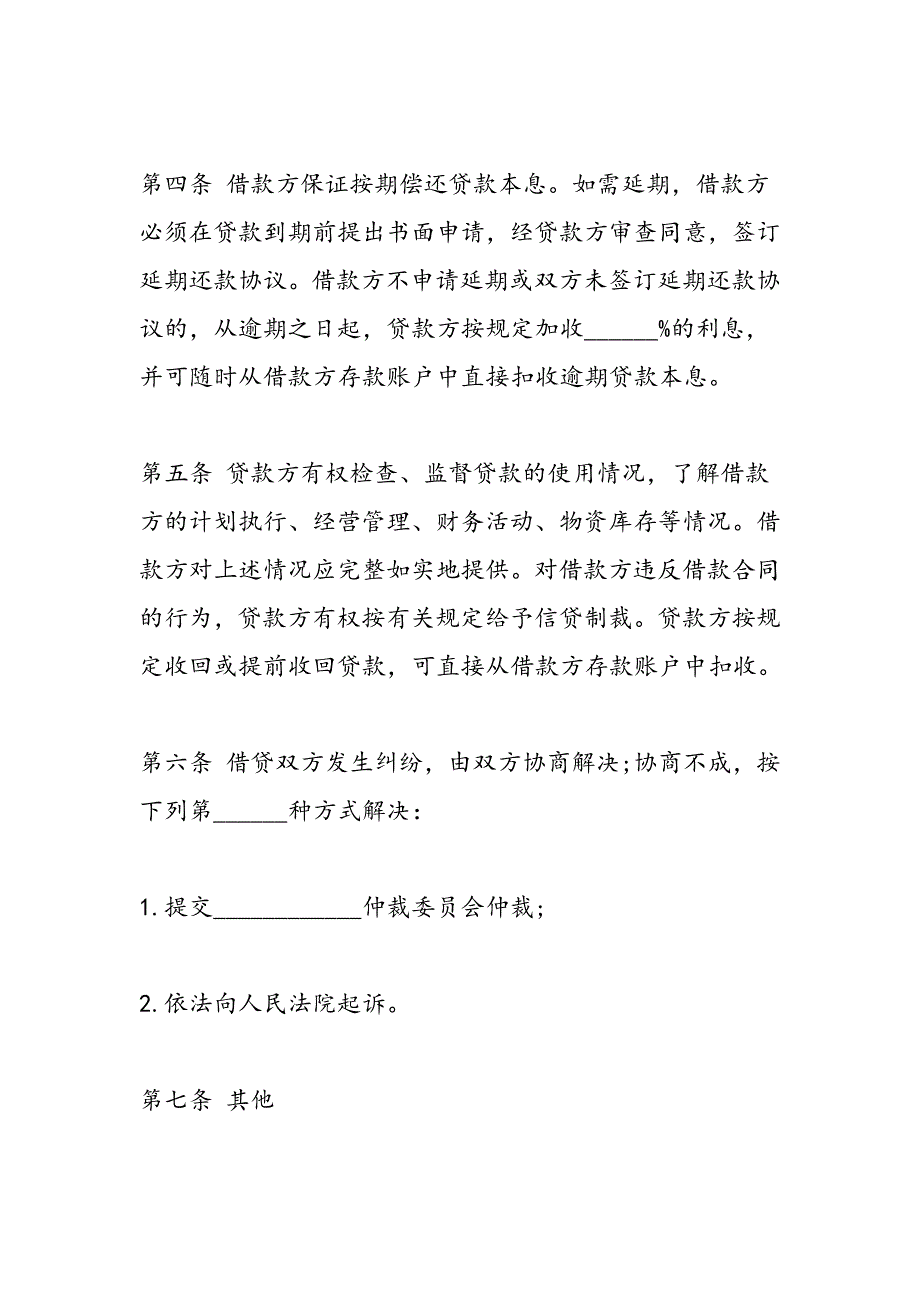 第四条 借款方保证按期偿还贷款本息。如需延期，借款方
必须在贷款到期前提出书面申请，经贷款方审查同意，签订
延期还款协议。借款方不申请延期或双方未签订延期还款协
议的，从逾期之日起，贷款方按规定加收______%的利息，
并可随时从借款方存款账户中直接扣收逾期贷款本息。
第五条 贷款方有权检查、监督贷款的使用情况，了解借款
方的计划执行、经营管理、财务活动、物资库存等情况。借
款方对上述情况应完整如实地提供。对借款方违反借款合同
的行为，贷款方有权按有关规定给予信贷制裁。贷款方按规
定收回或提前收回贷款，可直接从借款方存款账户中扣收。
第六条 借贷双方发生纠纷，由双方协商解决;协商不成，按
下列第______种方式解决：
1.提交____________仲裁委员会仲裁;
2.依法向人民法院起诉。
第七条 其他